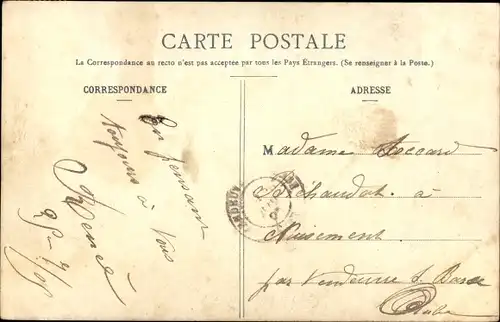 CARTE POSTALE
La Correspondance au recto n'est pas acceptée par tous les Pays Étrangers. (Se renseigner à la Poste.)
CORRESPONDANCE
En pensant
toujours à vous
René
ADRESSE
Madame
à
Nuisement
par Vendeuvre s. Barse
Aube